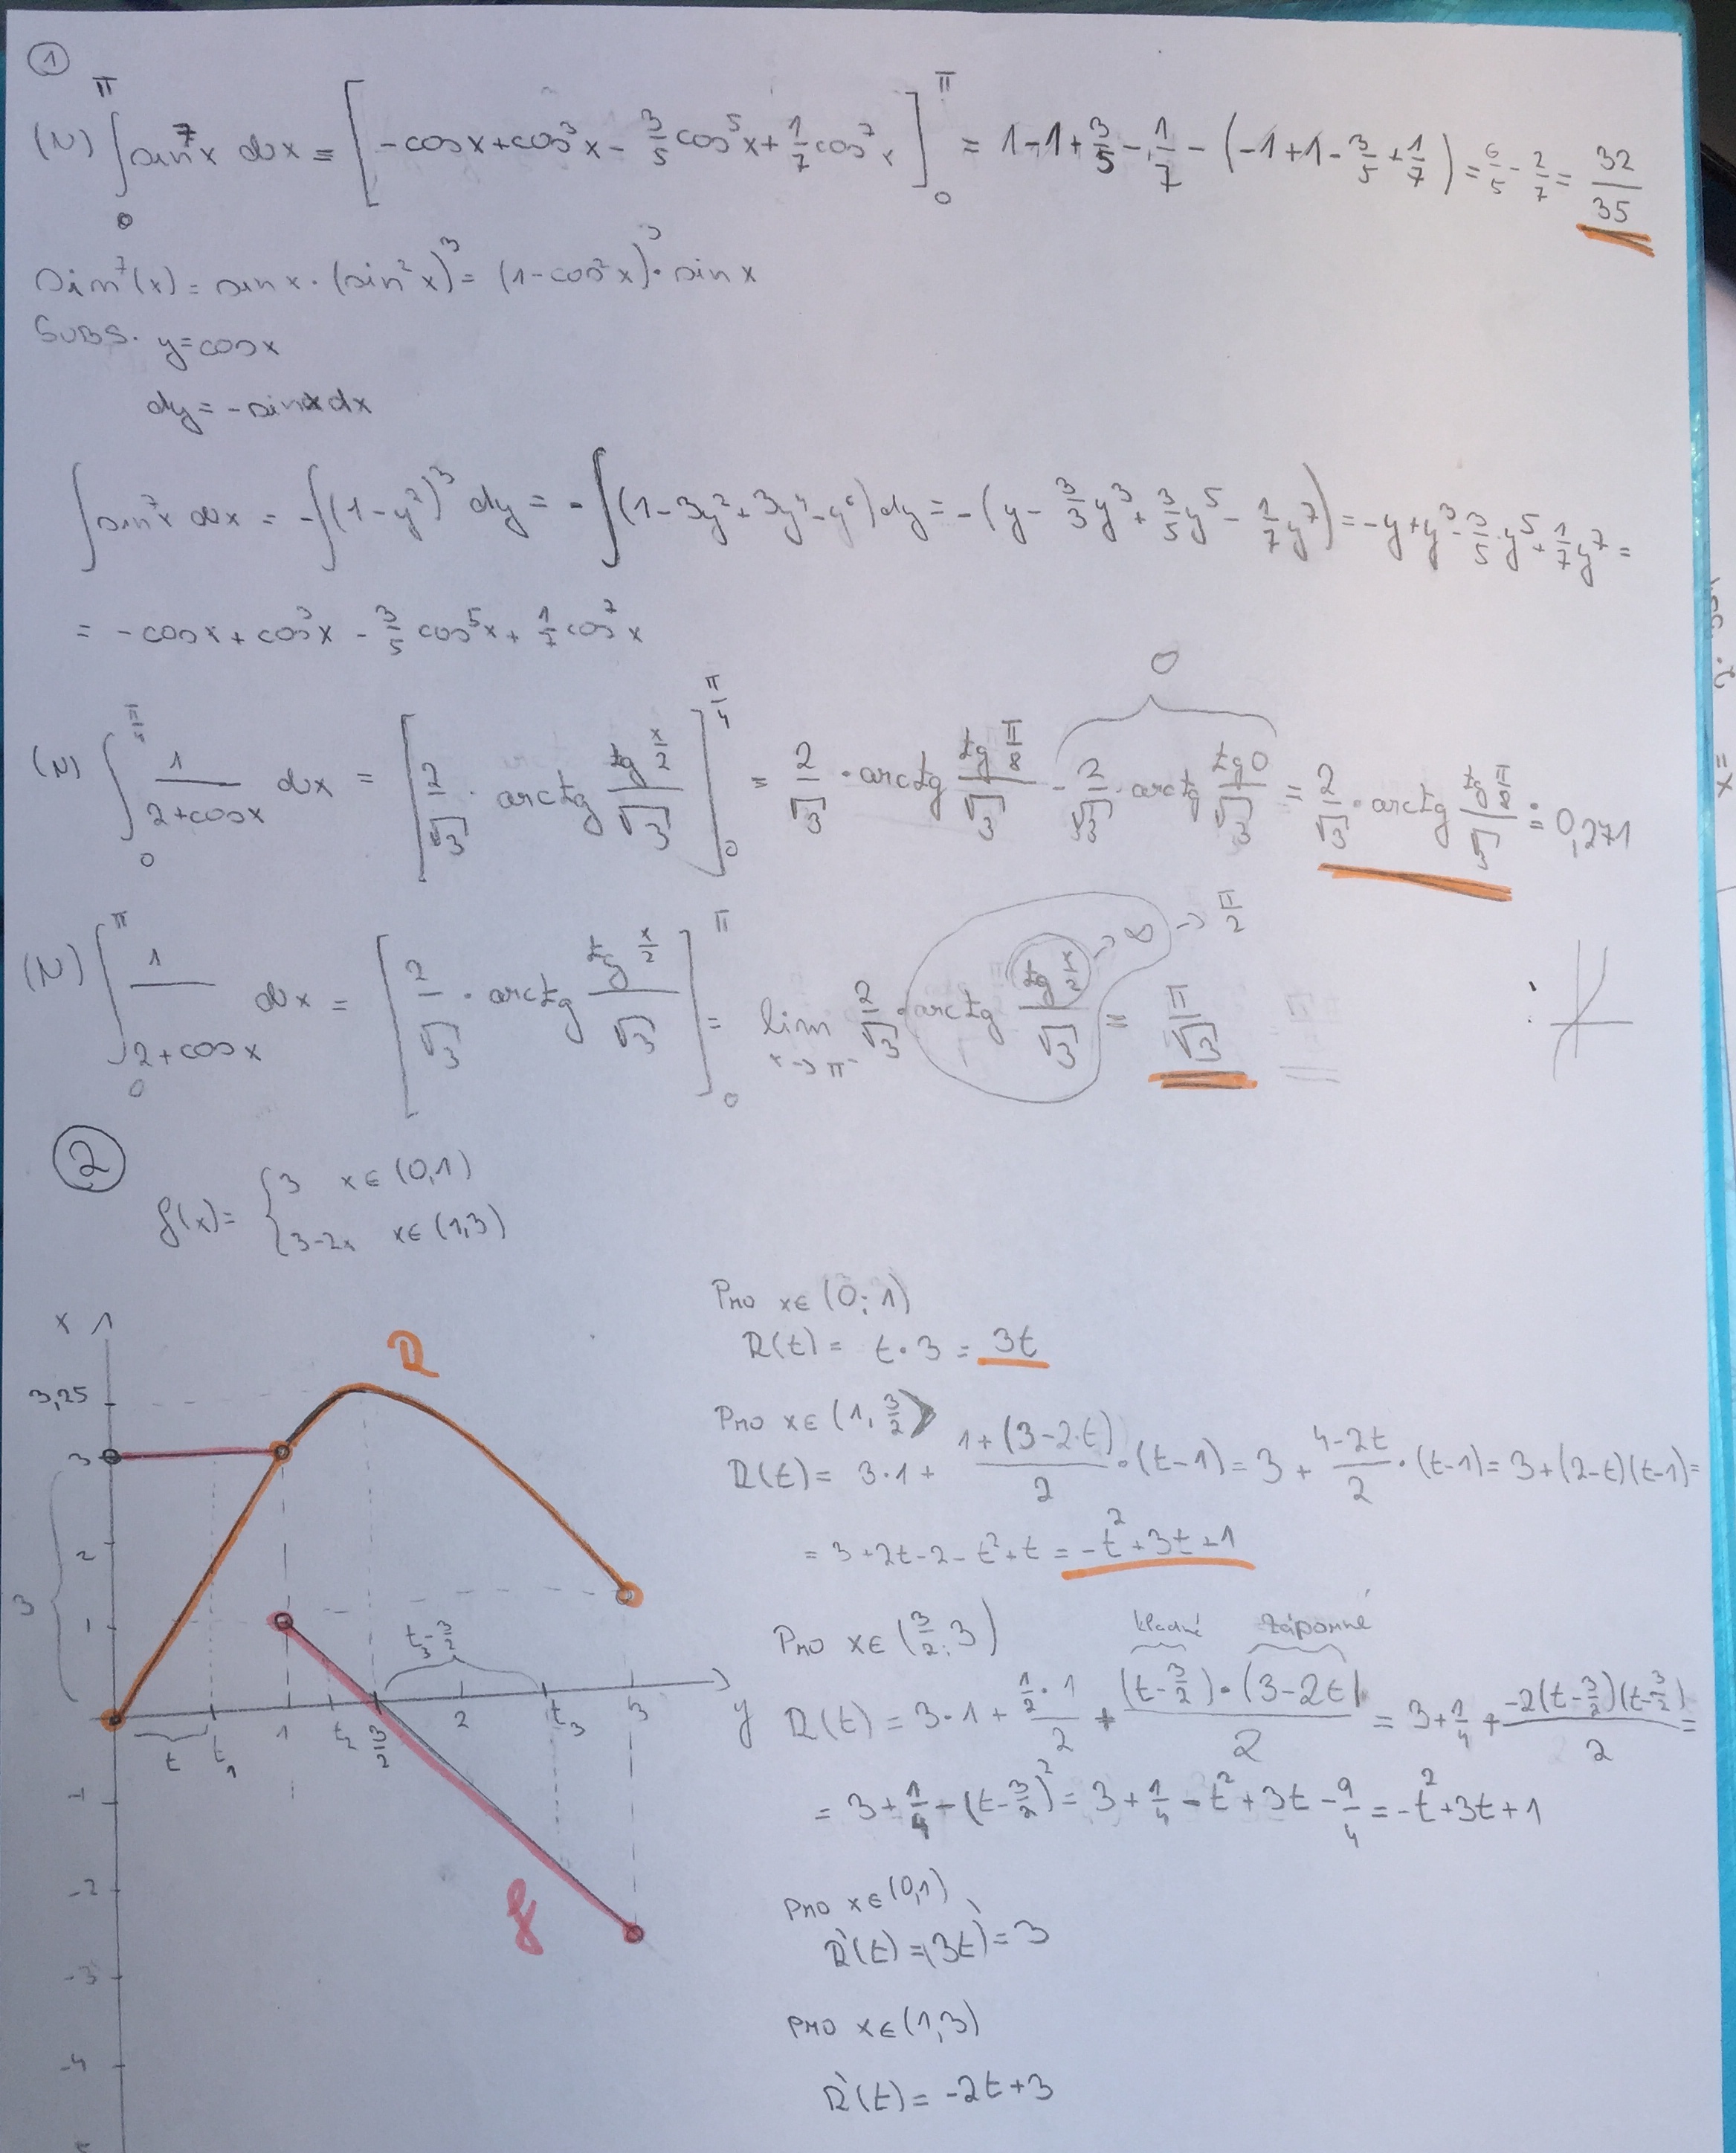 ①
(N) ∫₀^π sin⁷x dx = [-cosx+cos³x - 3/5 cos⁵x + 1/7 cos⁷x]₀^π = 1-1+3/5-1/7-(-1+1-3/5+1/7) = 6/5 - 2/7 = 32/35
sin⁷(x) = sinx·(sin²x)³ = (1-cos²x)³·sinx
SUBS. y=cosx
dy=-sinxdx
∫sin⁷x dx = -∫(1-y²)³ dy = -∫(1-3y²+3y⁴-y⁶)dy = -(y - 3/3 y³ + 3/5 y⁵ - 1/7 y⁷) = -y+y³-3/5·y⁵+1/7 y⁷ =
= -cosx + cos³x - 3/5 cos⁵x + 1/7 cos⁷x
0
(N) ∫₀^(π/4) 1/(2+cosx) dx = [2/√3 · arctg (tg x/2)/√3]₀^(π/4) = 2/√3 · arctg (tg π/8)/√3 - 2/√3 · arctg (tg 0)/√3 = 2/√3 · arctg (tg π/8)/√3 ≐ 0,271
(N) ∫₀^π 1/(2+cosx) dx = [2/√3 · arctg (tg x/2)/√3]₀^π = lim x→π⁻ 2/√3 · arctg (tg x/2)/√3 = π/√3
→ ∞ → π/2
②
f(x) = { 3 x∈(0,1)
3-2x x∈(1,3)
Pro x∈(0;1)
R(t) = t·3 = 3t
Pro x∈(1,3/2⟩
R(t) = 3·1 + (1+(3-2·t))/2 ·(t-1) = 3 + (4-2t)/2 · (t-1) = 3+(2-t)(t-1) =
= 3+2t-2-t²+t = -t²+3t+1
Pro x∈(3/2;3)
kladné záporné
R(t) = 3·1 + (1/2·1)/2 + ((t-3/2)·(3-2t))/2 = 3+1/4 + (-2(t-3/2)(t-3/2))/2 =
= 3+1/4-(t-3/2)² = 3+1/4-t²+3t-9/4 = -t²+3t+1
Pro x∈(0,1)
R'(t) = (3t)' = 3
Pro x∈(1,3)
R'(t) = -2t+3
x
R
3,25
3
2
3
1
t₃-3/2
t t₁ 1 t₂ 3/2 2 t₃ 3 y
-1
-2
f
-3
-4